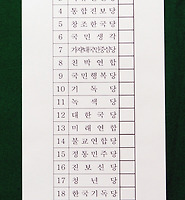 4 통합진보당
5 창조한국당
6 국민생각
7 가자!대국민중심당
8 친박연합
9 국민행복당
10 기독당
11 녹색당
12 대한국당
13 미래연합
14 불교연합당
15 정통민주당
16 진보신당
17 청년당
18 한국기독당